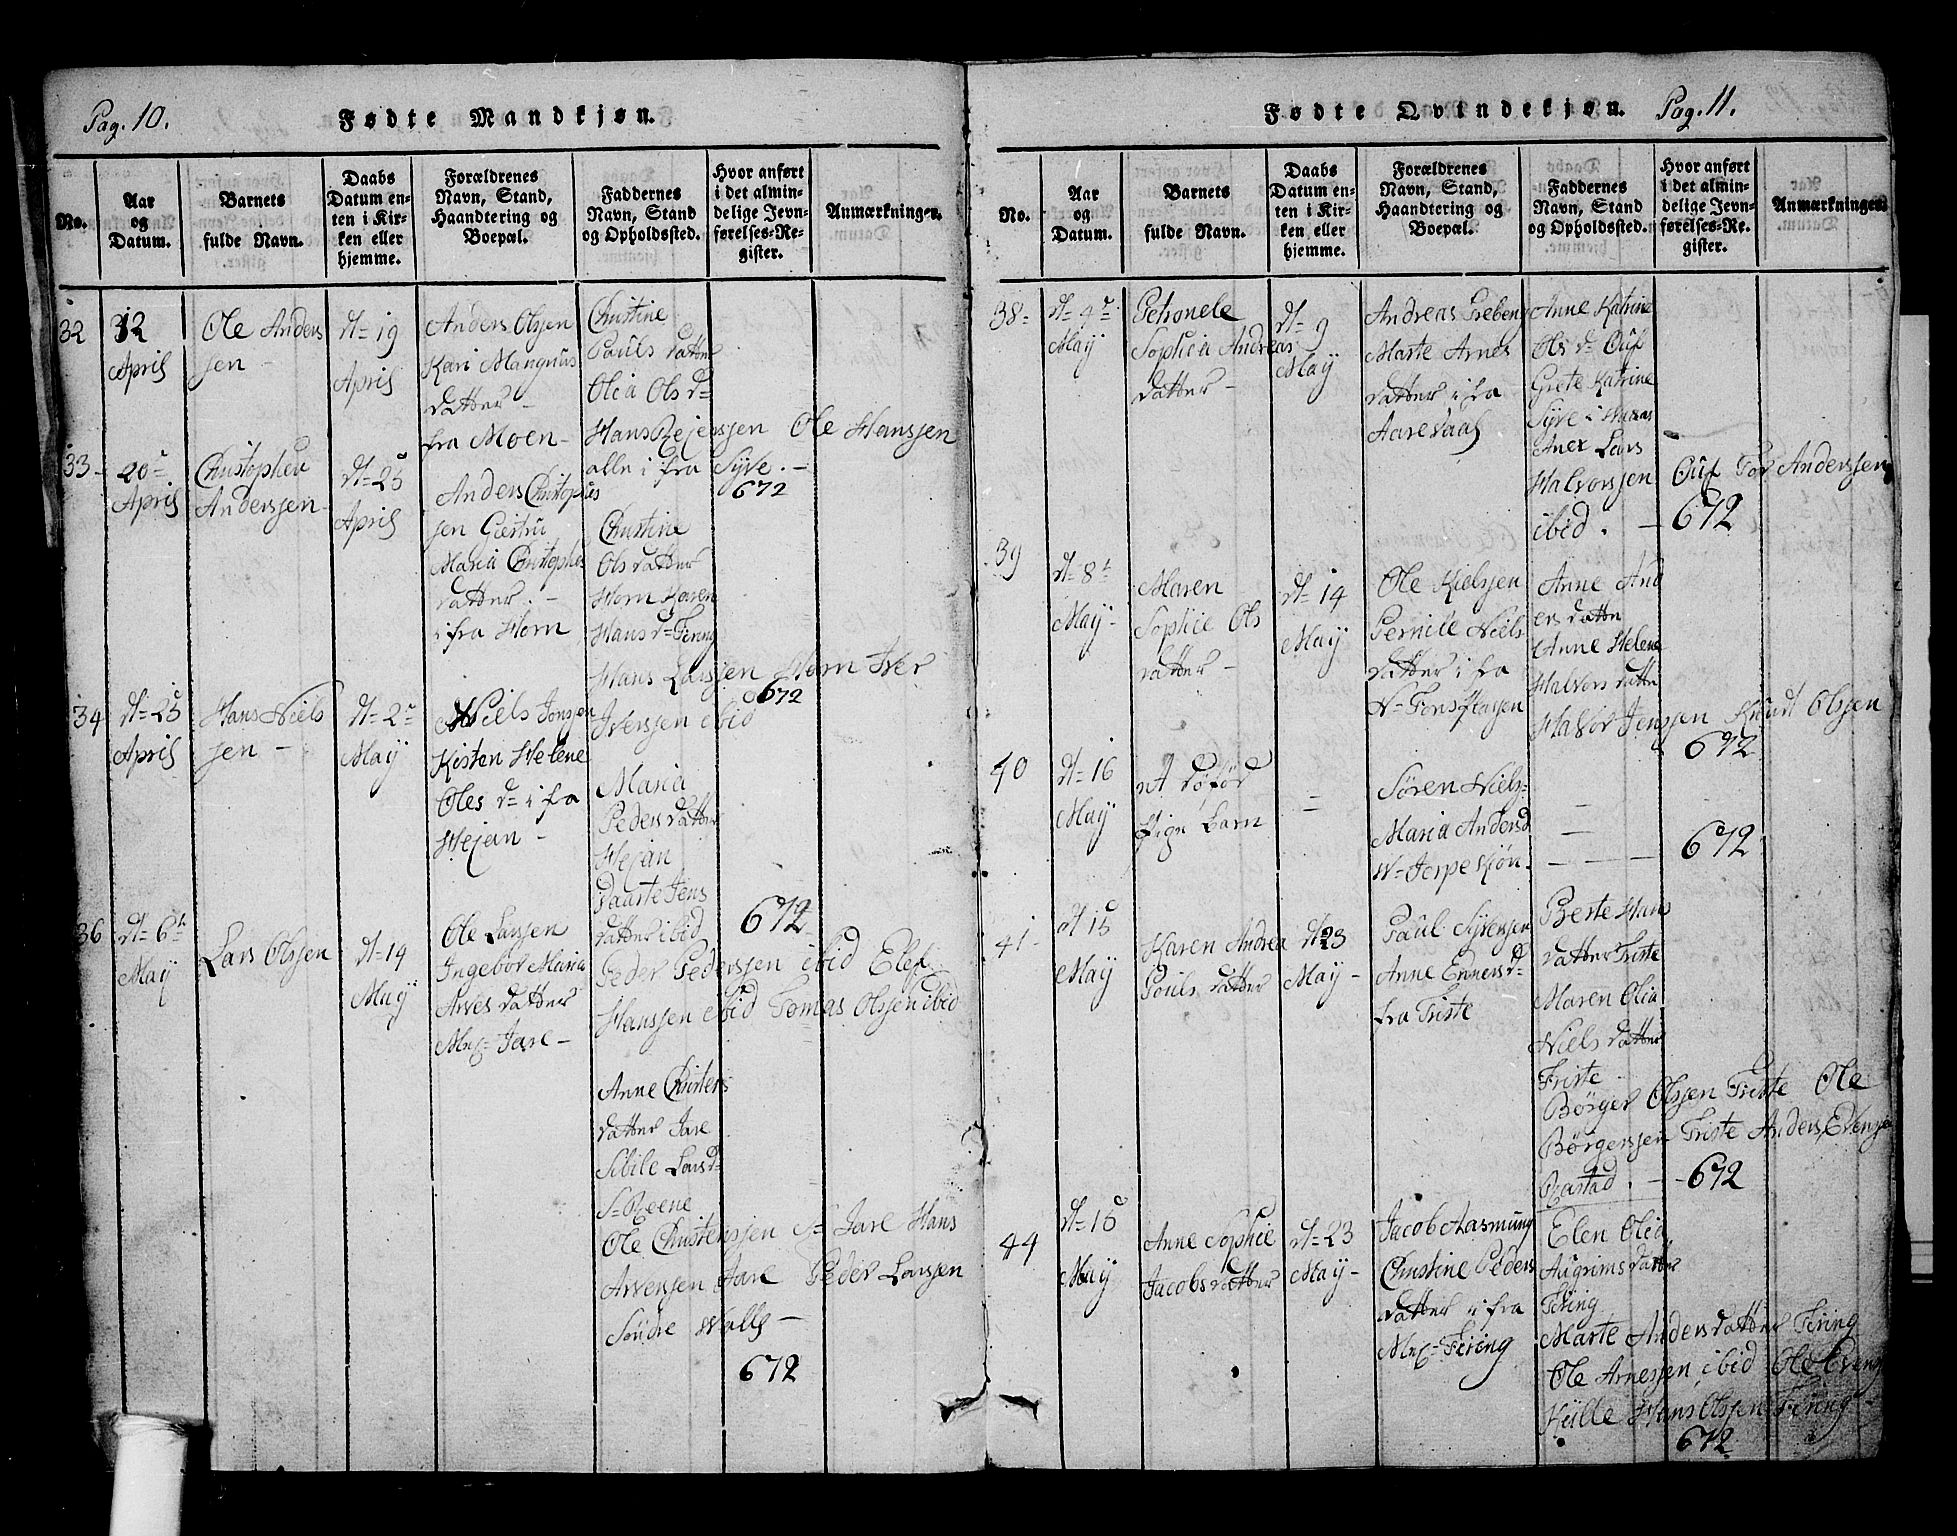 Pag. 10.
Fødte Mandkjøn.
No.
Aar
og
Datum.
Barnets
fulde Navn.
Daabs
Datum en-
ten i Kir-
ken eller
hjemme.
Forældrenes
Navn, Stand,
Haandtering og
Boepæl.
Faddernes
Navn, Stand
og Opholdssted.
Hvor anført
i det almin-
delige Jevn-
førelses-Re-
gister.
Anmærkninger.
32
12
April
Ole Anders
sen -
d= 19
April
Anders Olssen
Kari Mangnus
datter -
fra Moen -
Christine
Pauls datter
Olia Ols d=
Hans Rejerssen Ole Hanssen
alle i fra Syve. -
672
33 -
20=
April
Christopher
Anderssen -
d= 25
April
Anders Christophs
sen
Maria Christophs
datter. -
i fra Horn
Christine
Olsdatter
Horn Karen
Hans d=
Hans Larssen Horn Iver
Iverssen ibid
672
34
d= 25
April
Hans Niels
sen -
d= 2=
May
Niels Jonssen
Kisten Helene
Oles d= i fra
Hejan -
Maria
Peders datter
Hejan
Maarte Jens
datter ibid
Peder Pederssen ibid Elef
Hanssen ibid Tomas Olssen ibid
672
36
d= 6t
May
Lars Olssen
d= 14
May
Ole Larssen
Ingebor Maria
Arves datter
Jare -
Anne Christens
datter Jare
Sibile Lars d=
Ole Christenssen S= Jare Hans
Arvessen Jare Peder Larssen
Søndre
672
Fødte Qvindekjøn.
Pag. 11.
No.
Aar
og
Datum.
Barnets
fulde Navn.
Daabs
Datum en-
ten i Kir-
ken eller
hjemme.
Forældrenes
Navn, Stand,
Haandtering og
Boepæl.
Faddernes
Navn, Stand
og Opholdssted.
Hvor anført
i det almin-
delige Jevn-
førelses-Re-
gister.
Anmærkninger.
38 -
d= 4=
May
Petronele
Sophia Andreas
datter -
d= 9
May
Andreas Grebeng
Marte Arnes
datter i fra
Aarevaal
Anne Katrine
Ols d=
Grete Katrine
Syve i
Lars
Halvorssen Tor Anderssen
ibid. -
672
39
d= 8t
May -
Maren
Sophie Ols
datter -
d= 14
May
Ole Kielssen
Pernile Niels
datter i fra
Anne And
ers datter
Anne Helene
Halvors datter
Halvor Jenssen Knudt Olssen
672
40
d= 16
May
et døfød
Pige Barn
=
Søren Niels=
Maria Anders d
-
-
- - -
672
41 -
d 15
May
Karen Andrea
Pouls datter
d 23
May -
Paul Syverssen
Anne d=
fra Triste
Berte Hans
datter Triste
Maren Olia
Niels datter
Triste
Børger Olssen Triste Ole
Børgerssen Triste Anders Evenssen
Rastad. -
672
44
d= 15
May
Anne Sophie
Jacobs datter
d= 23
May -
Jacob Aasmung
Christine Peders
datter i fra
Elen Olia
Augrims datter
Marte Anders datter
Ole Arnessen ibid Ole
Hans Olssen
672